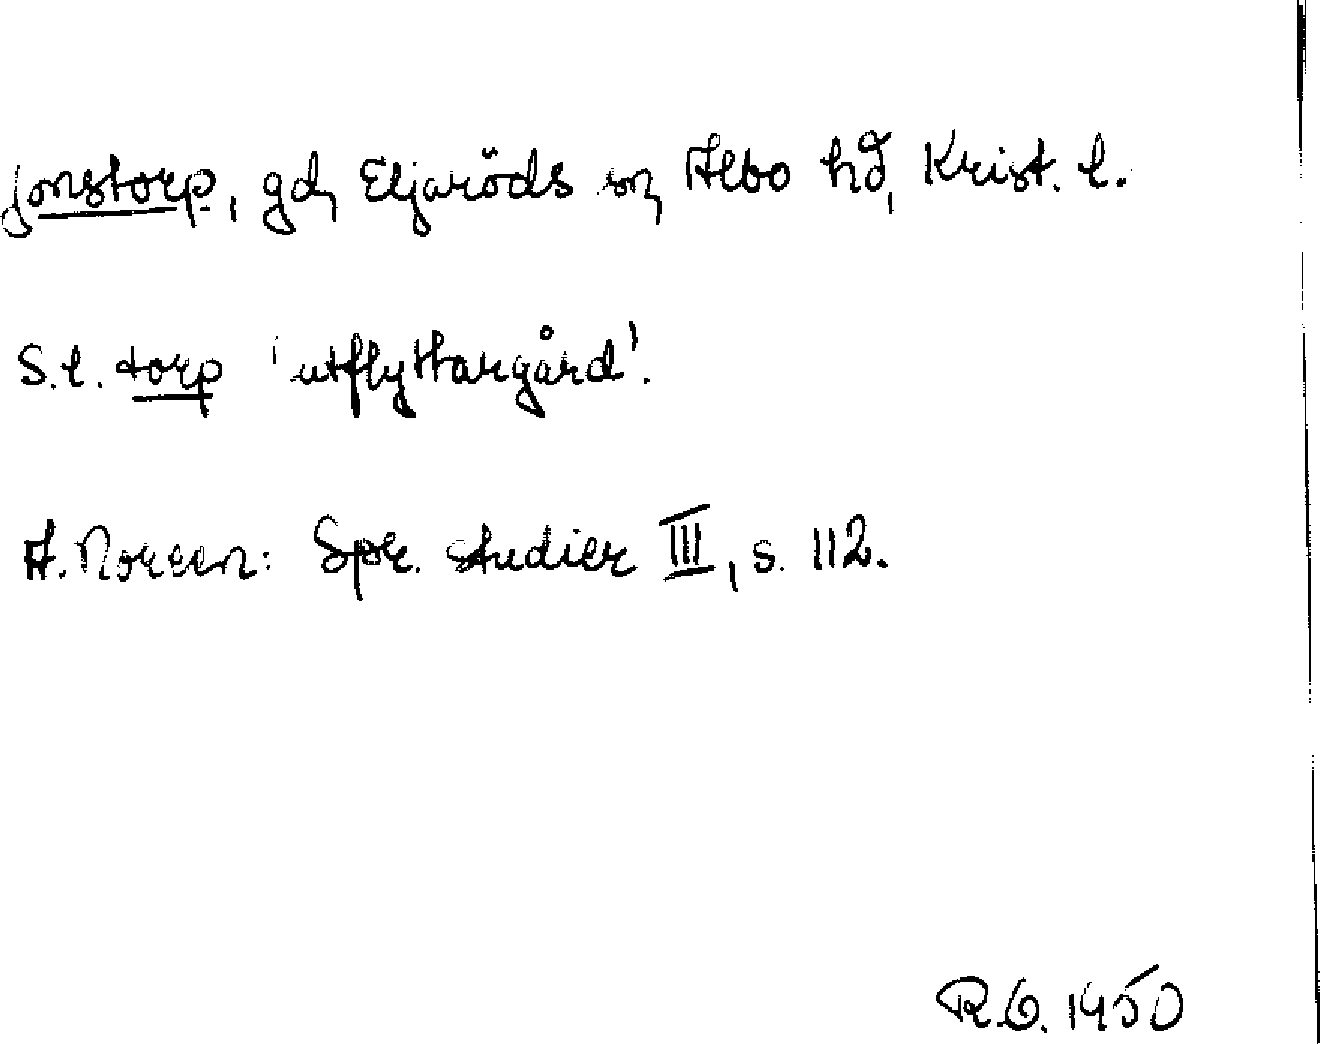 Jonstorp, gd, Eljaröds sn, Albo hd, Krist. l.
S.l. torp 'utflyttargård'.
A. Noreen: Spr. studier III, s. 112.
R.G. 1950